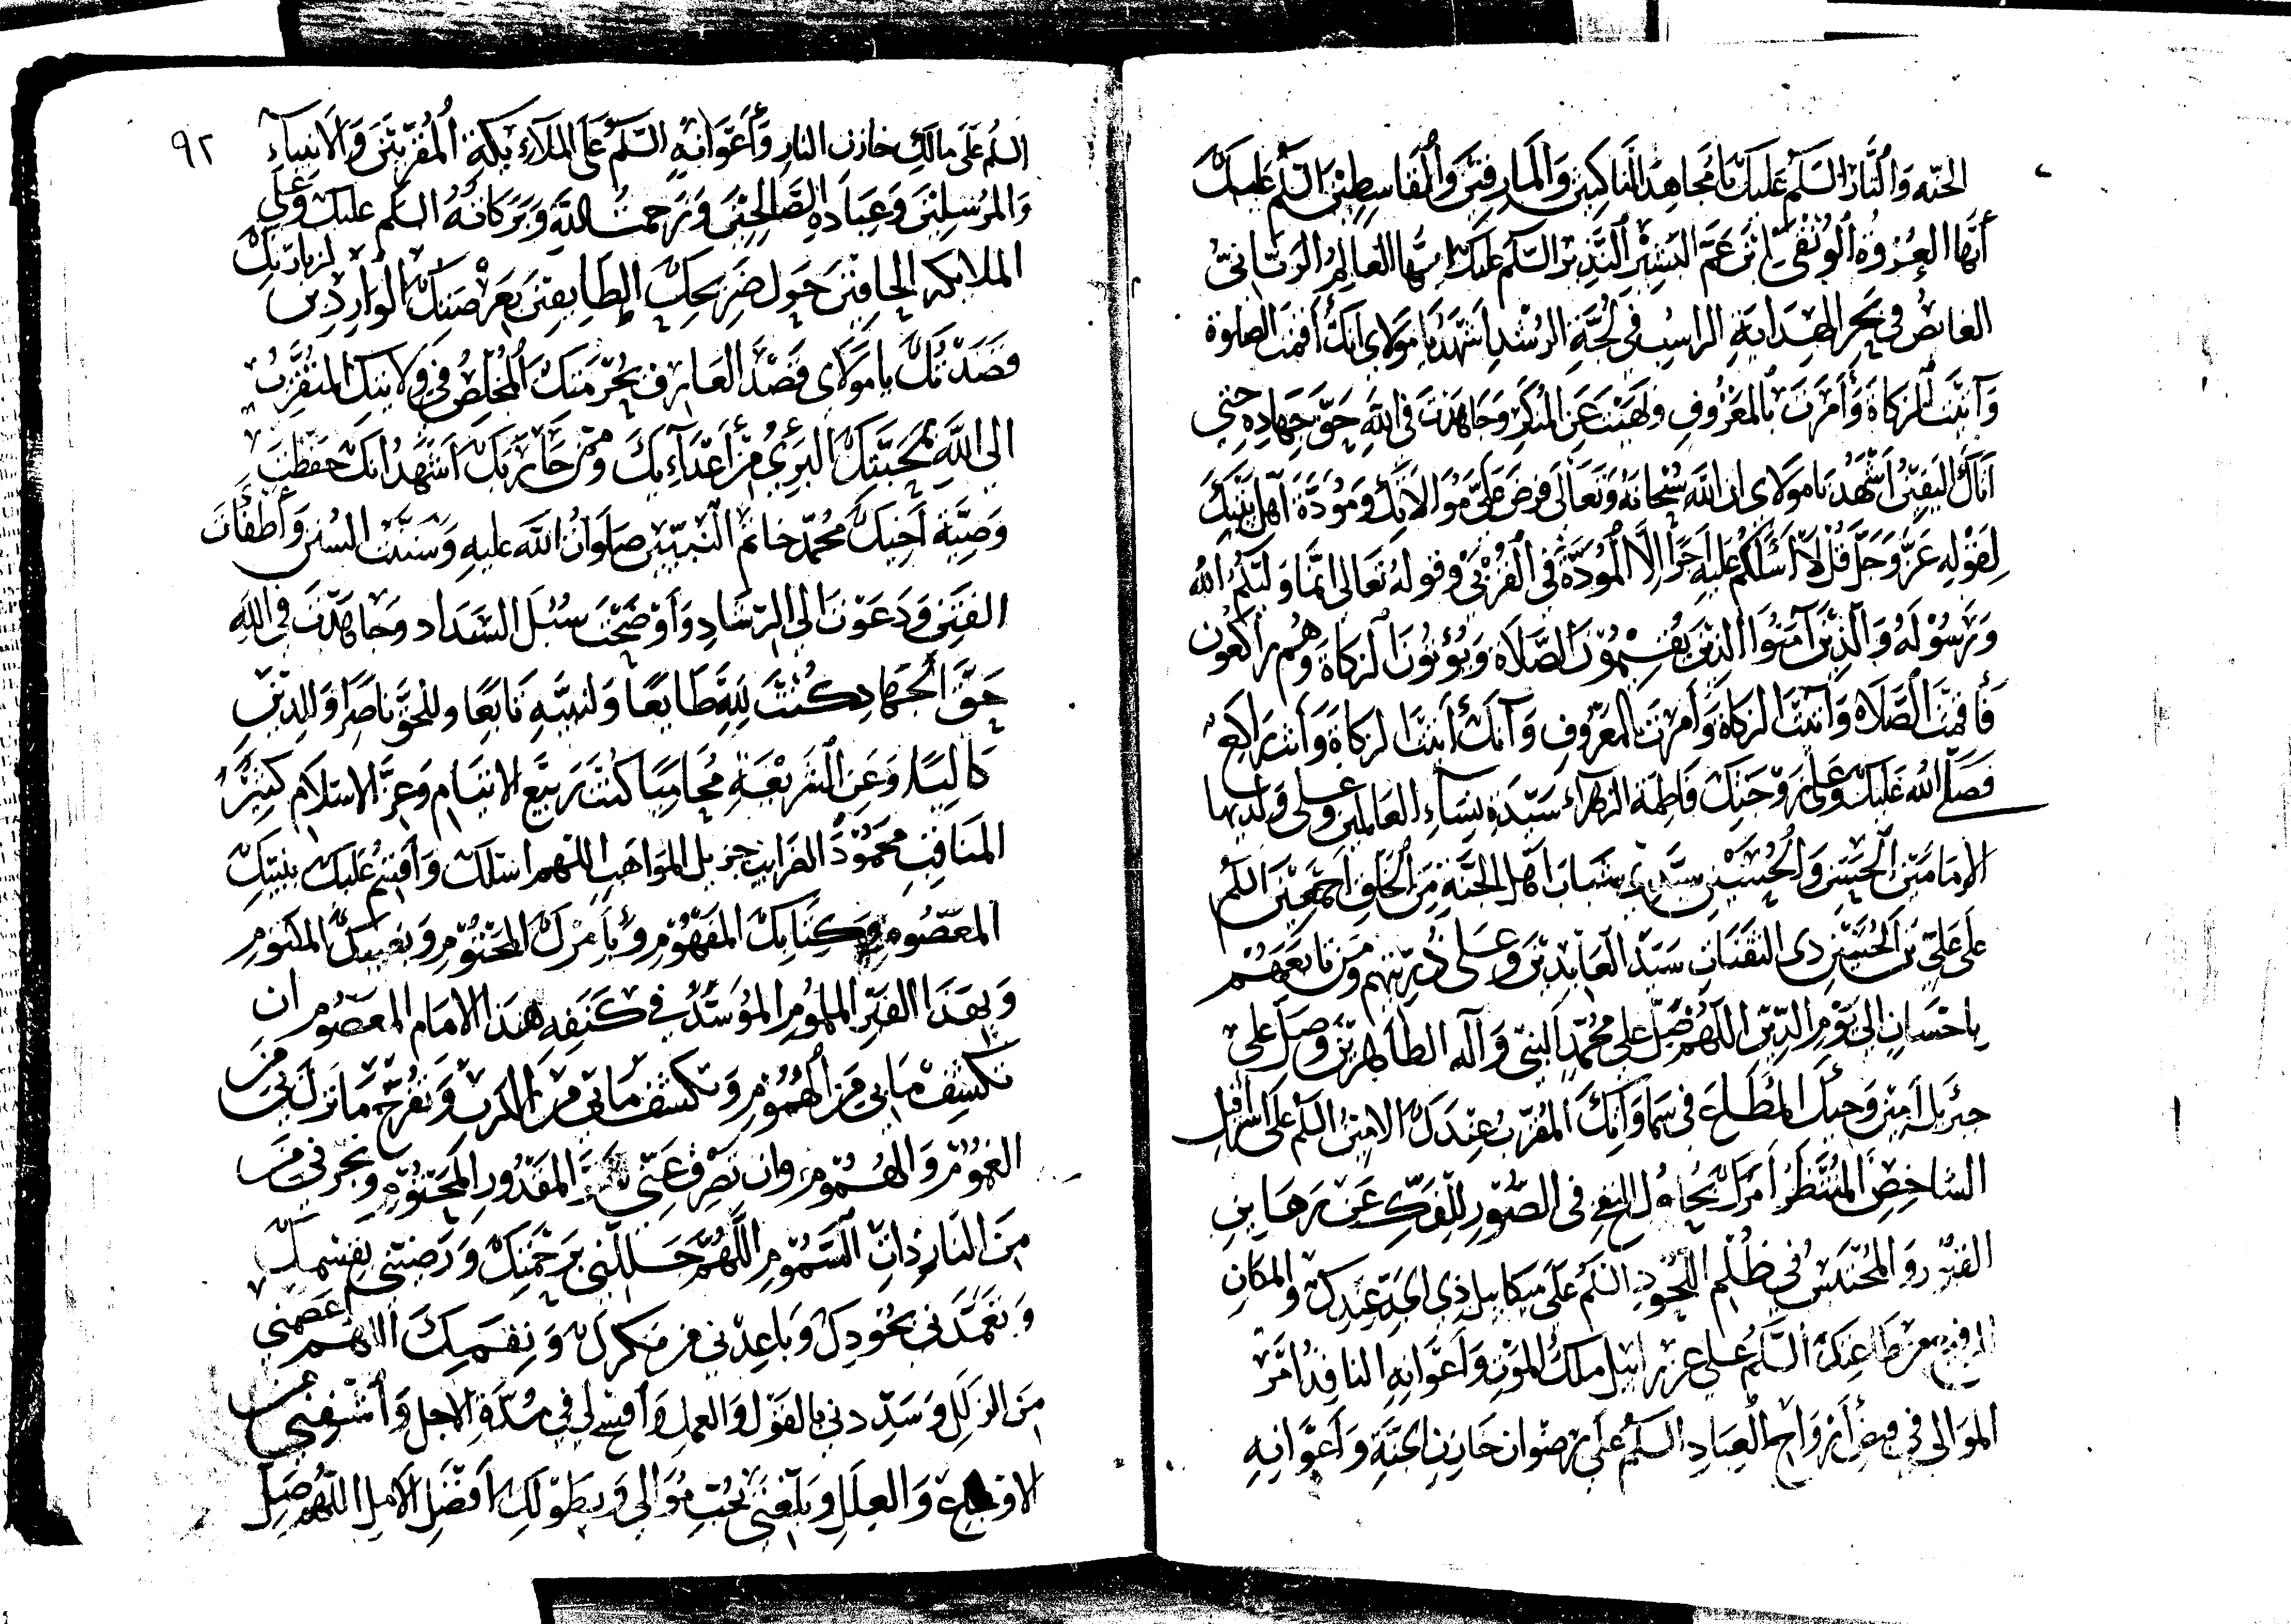 الجنه وَالنَّار السَّلَم عَليكَ يا مُجاهِد الناكثِين وَالمارِقينَ وَالقَاسِطِينَ السَّلم عَليكَ
أَيّها العُرْوَة الوُثقى يا بنَ عَم البَشِيْرِ النَّذيْر السَّلَم عَليكَ ايّها العَالِمُ الرَبّانيّ
الغايصُ في بَحرِ الهِدايَةِ الراسِبُ في لُجَّةِ الرُشْدِ اَشْهَدُ يا مَولاي انّكَ أقَمْتَ الصلوة
وَآتَيْتَ الزكاة وَأَمَرْتَ بالمَعْرُوفِ ونَهَيْتَ عَنِ المُنكَر وَجاهَدْتَ في اللهِ حَقَّ جِهادِه حتي
اَتاكَ اليَقيْنُ اَشْهَدُ يَا مَولاي ان الله سُبْحانهُ وَتَعَالى فَرضَ عَليَّ مُوَالاتِكَ ومُوَدَّةَ آهل بَيْتِكَ
لِقَوْلِهِ عَزَّ وَجَلَّ قُلْ لَا اَسْئَلكُم عَليهِ اَجْراً اِلَّا المُوَدَّةَ في القُرْبَى وقوله تَعَالى انّما وَليّكُمُ الله
وَرَسُوْلَهُ وَالَّذِيْنَ آمَنُوا الّذِينَ يُقِيْمُوْنَ الصَّلَاة وَيُؤْتُوْنَ الزكاة وَهُم راكعُون
فَأَقَمْتَ الصَّلَاة وَآتَيْتَ الزكاة وَأَمَرْتَ بالمَعْرُوفِ وَآنكَ أتَيْتَ الزكاة وَأَنتَ رَاكِع
فَصَلَّى اللهُ عَليكَ وعَلى زَوْجَتِكَ فَاطِمَة الزهراء سَيّدة نِسَاءِ العَالمين وعلى ولديها
الإمَامَيْن الْحَسَنِ وَالحُسَيْنِ سَيّدي شَبَاب اَهْلِ الجَنّةِ مِنَ الخَلقِ اَجْمَعيْنَ السّلَم
عَلَى عَليّ بن الحُسَيْنِ ذِى الثَفَنَات سَيّد العَابدِيْنَ وعَلَى ذُريّتهم ومَن تابَعَهُمْ
باحْسَانٍ الى يَوْمِ الدِّيْنِ اللَّهُمَّ صَلّ على مُحَمّدٍ النبيّ وَآله الطاهِرِيْنَ وَصَلّ على
جبْرَئيلَ اَميْنِ وَحيكَ المُطَاعَ في سَمَاوَاتِكَ المُقَرّب عِنْدَكَ الامينُ السّلم عَلى اسرافيل
الشاخِصِ المُنْتَظر اَمركَ بحُلول النفخِ فى الصُّوْرِ لِلفكِّ عَن رَهَاينِ
القبُوْر وَالمُحْتَبس في ظُلَمِ اللُّحُوْدِ السّلم عَلَى ميكاييلَ ذِى الجَاهِ عِنْدكَ والمكانِ
الرفيع من طَاعَتِكَ السَّلَمُ عَلى عزراييل ملك المَوْتِ وَاَعْوَانِهِ النافِذُ اَمْرَ
المَوَالى في قبضِ أَرْوَاحِ العِبَادِ السلمُ عَلَى رِضْوَان خَازِن الجَنّةِ وَاَعْوَانِهِ
٩٢
السلم عَلَى مالكٍ خازن النار وَأَعْوَانِهِ السَّلَمُ عَلَى المَلَاءِيْكةِ المُقَرّبِيْنَ وَالَانبيآءِ
وَالمُرْسَلِيْنَ وَعِبَادِهِ الصَّالحِيْنَ وَرَحمتُ اللهِ وَبَرَكَاتهُ السَلَم عَليكَ وَعلى
الملايكه الحَافيْنَ حَوْل ضَرِيحِكَ الطايفيْنَ بعَرْصَتِكَ الوَارِدِين لزِيَارتِكَ
قَصَدْتُكَ يا مَولَاى قَصْدَ العَارِفِ بحُرْمَتِكَ المُخلصُ في وَلايتِكَ المُتَقَرّبُ
الى اللَّهِ بمَحَبَّتِكَ البَرِيُ مِن أَعْدَآءِيكَ وَمِمّن حَارَبكَ اَشْهَدُ انّكَ حَفَظتَ
وَصِيَّةَ اَخِيْكَ مُحَمّد خاتم النَبيّيْن صَلَوَاتُ اللَّهِ عليهِ وَسَنَنْتَ السُنَن وَأَطْفَأتَ
الفِتَنَ وَدَعَوْتَ الى الرّشَادِ وَأَوْضَحْتَ سُبُلَ السَدَاد وجَاهَدْتَ في اللهِ
حَقَّ الجِهَادِ كُنْتَ للهِ طَايعاً وَلنَبيّهِ تابعًا وللحقّ ناصِرًا وَلِلدّيْنِ
كَالِيًا وَعَنِ الشَرِيْعَةِ مُحَامِيًا كُنتَ رَبِيْعَ الايتام وَعِزَّ الاسلام كَثِيْرُ
المنَاقِبِ مَحمُوْدَ الضَرايبِ جزيل المَوَاهِبِ اللهم اسئلكَ وَأُقْسِمُ عَليكَ بنَبيّكِ
المعْصُوم وَكِتَابكَ المَفْهُوْمِ وبأمركَ المَحْتُوْمِ وَبغَيبكَ المكتومِ
وَبهَذَا القَبْر المَلمُومِ المُوَسَّد في كَنَفِهِ هَذا الامام المعصُوم ان
تكشِفَ مَا بي مِنَ الهُمُوْمِ وَتكشف مَا بي مِن الكرب وَتفَرّج مَا نزل بي من
الغمُوْمِ وَالهُمُوْمِ وان تَصْرِفَ عَنّى المَقْدُورِ المَحْتُوْمِ وتجرني من
مِنَ النارِ ذاتِ السَمُوْمِ اللَّهُمَّ جَللنى برَحْمَتِكَ وَرَضّنِي بقِسْمِكَ
وَتَغَمَّدْني بجُوْدِكَ وَباعِدْني من مَكركَ وَنِقمَتِكَ اللهم اعصمني
مِنَ الزلَلِ وَسَدِّدني بالقَوْل وَالعمل وافسح لي في مُدَّةِ الاجل وَأَشْفِني من
الاوجاع وَالعِلَلِ وَبَلّغنِي بحُبّ مُوَالي وَبطَوْلكَ اَفْضَل الامل اللهم صَلِّ